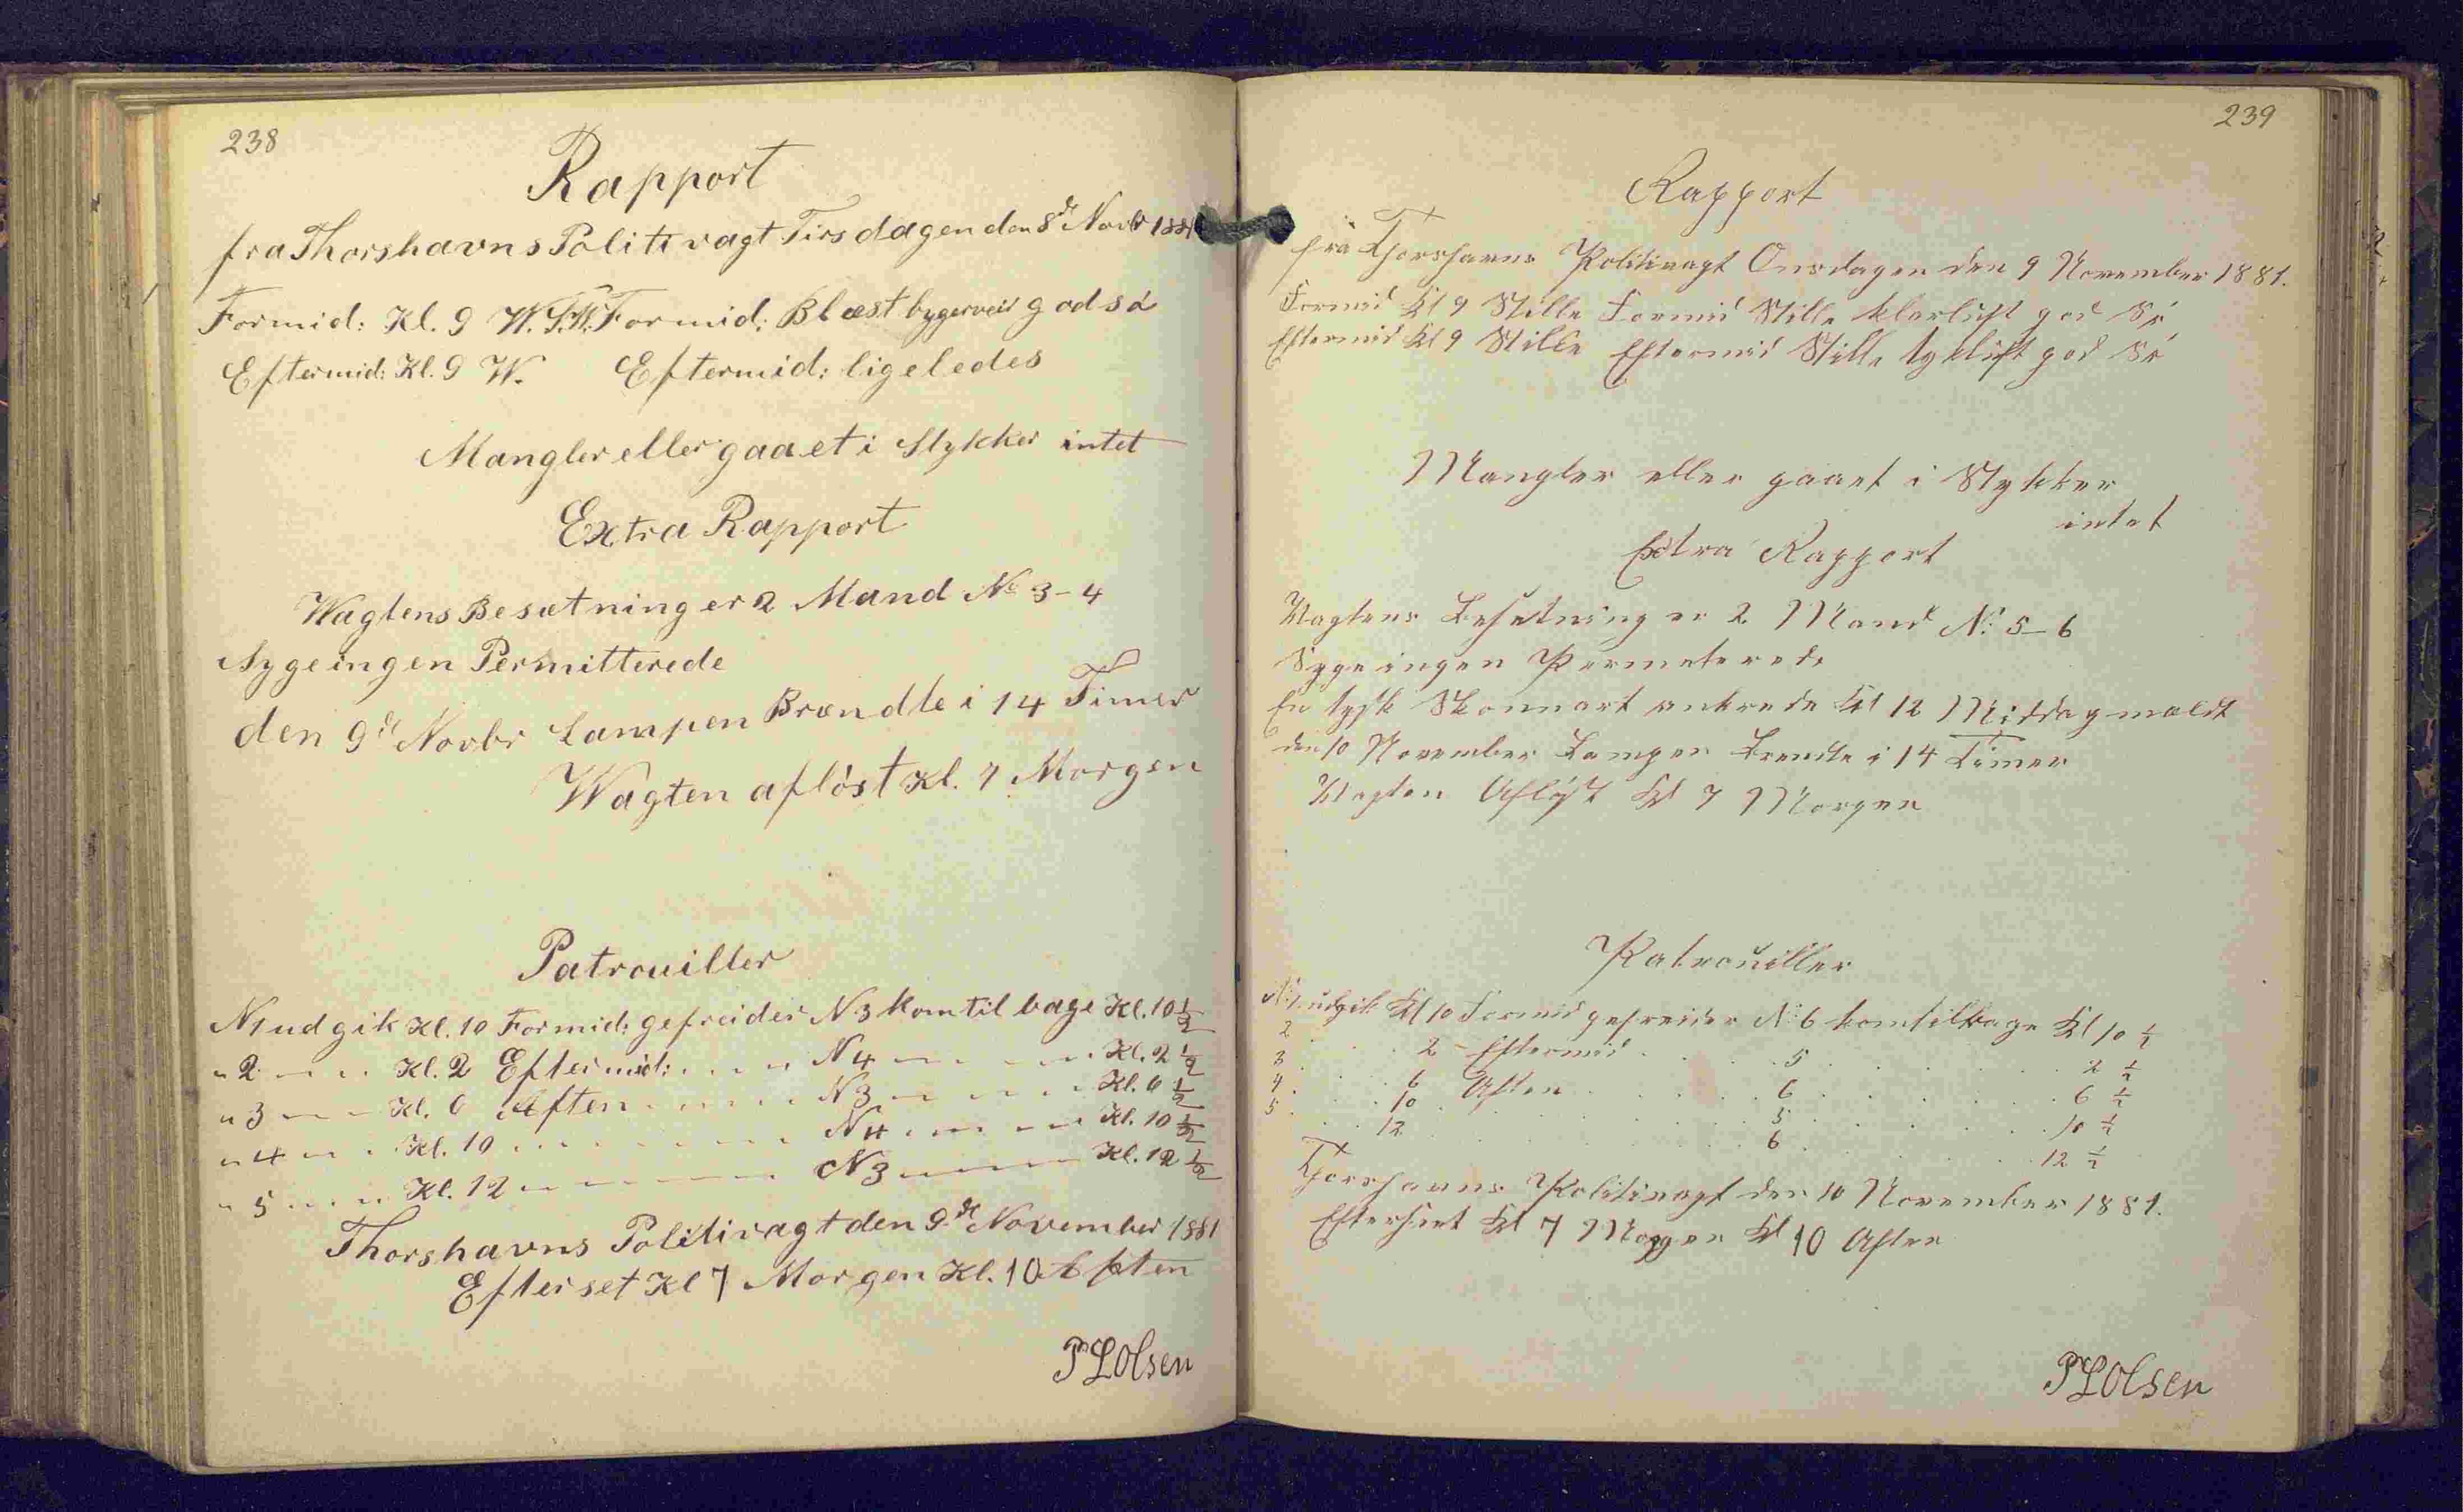 238
Rapport
fra Thorshavns Politivagt Tirsdagen den 8de Novbr 1881
Formid: Kl. 9 W.S.W. Formid: Blæst bygerveir god sö
Eftermid: Kl. 9 W. Eftermid: ligeledes
Mangler eller gaaet i Stykker intet
Extra Rapport
Wagtens Besætning er 2 Mand No 3-4
Syge ingen Permitterede
den 9de Novbr Lampen Brændte i 14 Timer
Wagten aflöst Kl. 7 Morgen
Patrouiller
N 1 udgik Kl. 10 Formid: gefreider N 3 kom tilbage Kl. 10 ½
" 2 " " Kl. 2 Eftermid: " " " N 4 " " " Kl. 2 ½
" 3 " " Kl. 6 Aften " " " N 3 " " " Kl. 6 ½
" 4 " " Kl. 10 " " " " N 4 " " " Kl. 10 ½
" 5 " " Kl. 12 " " " " N 3 " " " Kl. 12 ½
Thorshavns Politivagt den 9de November 1881
Efterset Kl 7 Morgen Kl. 10 Aften
P L Olsen
239
Rapport
fra Thorshavns Politivagt Onsdagen den 9 November 1881.
Formid Kl 9 Stille Formid Stille klarluft god Sö
Eftermid Kl 9 Stille Eftermid Stille tykluft god Sö
Mangler eller gaaet i Stykker
intet
Extra Rapport
Vagtens Besetning er 2 Mand No 5-6
Syge ingen Permeterede
En tysk Skonnart ankrede Kl 12 Middag meldt
den 10 November Lampen Brendte i 14 Timer
Vagten Aflöst Kl 7 Morgen
Patrouiller
No 1 udgik Kl 10 Formid gefreider No 6 kom tilbage Kl 10 ½
2 . . . . 2 Eftermid . . . . 5 . . . . . 2 ½
3 . . . . 6 Aften . . . . 6 . . . . . 6 ½
4 . . . . 10 . . . . . . 5 . . . . . 10 ½
5 . . . . 12 . . . . . . 6 . . . . . 12 ½
Thorshavns Politivagt den 10 November 1881.
Efterset Kl 7 Morgen Kl 10 Aften
P L Olsen